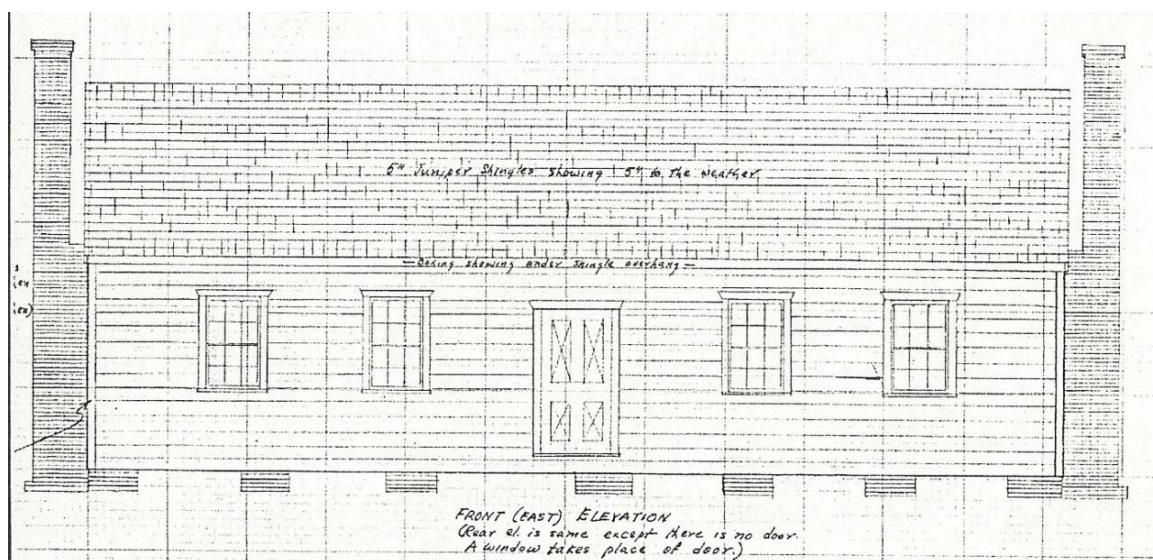 5" Juniper Shingles showing 5" to the weather
— Decking showing under shingle overhang —
FRONT (EAST) ELEVATION
(Rear el. is same except there is no door.
A window takes place of door.)